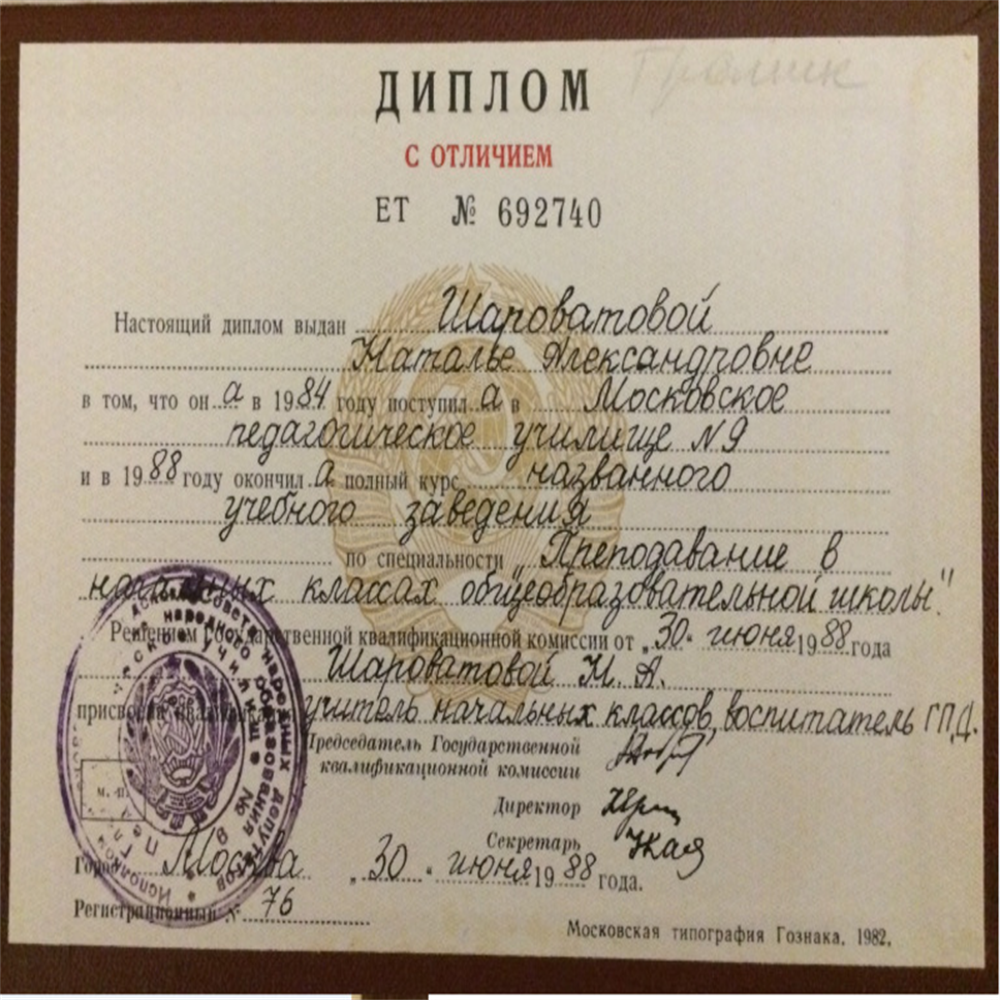 Грамик
ДИПЛОМ
С ОТЛИЧИЕМ
ЕТ № 692740
Настоящий диплом выдан Шароватовой
Наталье Александровне
в том, что он а в 1984 году поступил а в Московское
педагогическое училище №9
и в 1988 году окончил а полный курс названного
учебного заведения
по специальности „Преподавание в
начальных классах общеобразовательной школы".
Решением Государственной квалификационной комиссии от „30" июня 1988 года
Шароватовой Н. А.
присвоена квалификация учитель начальных классов, воспитатель ГПД.
Председатель Государственной
квалификационной комиссии
Директор
Секретарь
м. п.
Город Москва „30" июня 1988 года.
Регистрационный № 76
Московская типография Гознака. 1982.